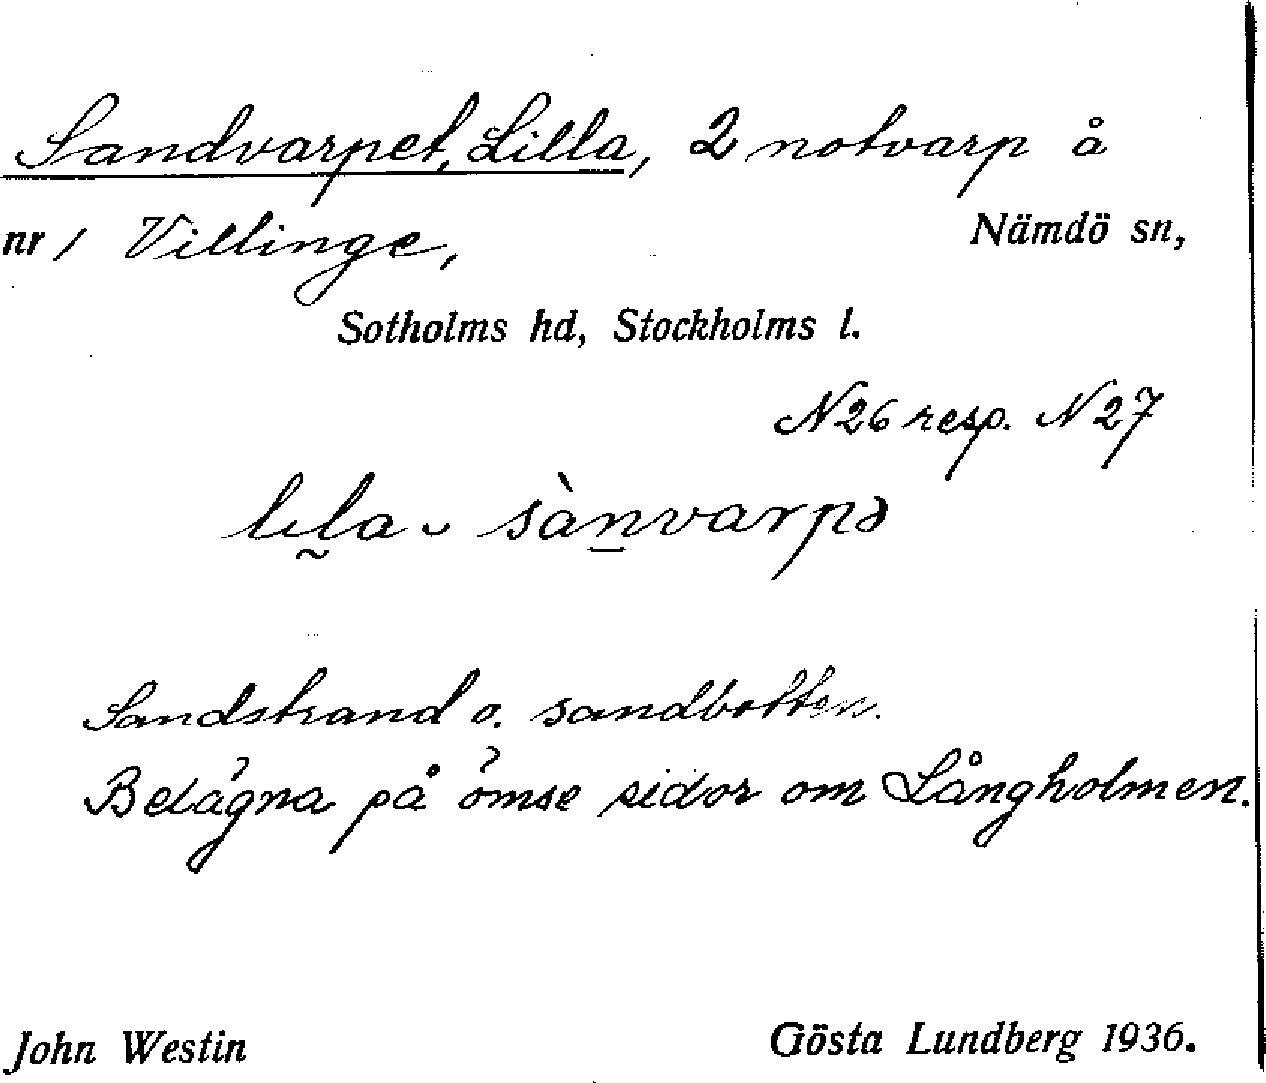 Sandvarpet, Lilla, 2 notvarp å
nr 1 Villinge, Nämdö sn,
Sotholms hd, Stockholms l.
N26 resp. N27
lıl̰a ˬ sàn̠varpə
Sandstrand o. sandbotten.
Belägna på ömse sidor om Långholmen.
John Westin Gösta Lundberg 1936.